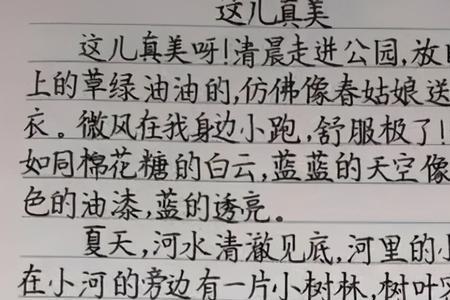 这儿真美
这儿真美呀!清晨走进公园,放
上的草绿油油的,仿佛像春姑娘送
衣。微风在我身边小跑,舒服极了!
如同棉花糖的白云,蓝蓝的天空像
色的油漆,蓝的透亮。
夏天,河水清澈见底,河里的
在小河的旁边有一片小树林,树叶